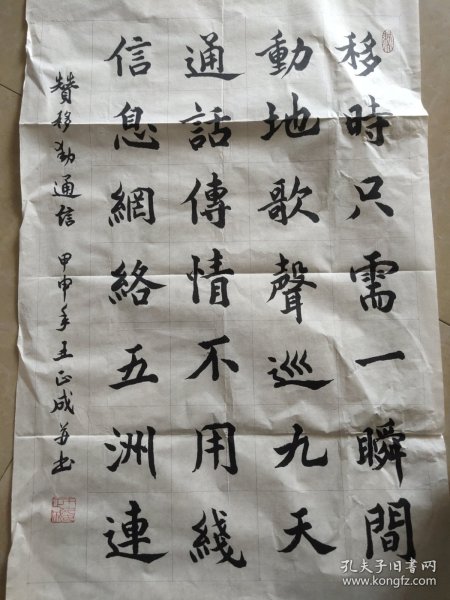 移時只需一瞬間
動地歌聲巡九天
通話傳情不用綫
信息網絡五洲連
赞移動通信 甲申年王正成并书
孔夫子旧书网
www.kongfz.com